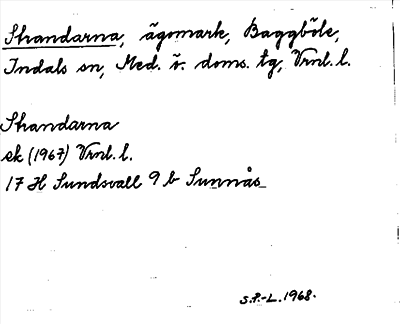 Strandarna, ägomark, Baggböle,
Indals sn, Med. v. doms. tg, Vrnl. l.
Strandarna
ek (1967) Vrnl. l.
17 H Sundsvall 9 b Sunnås
S.P.-L. 1968.